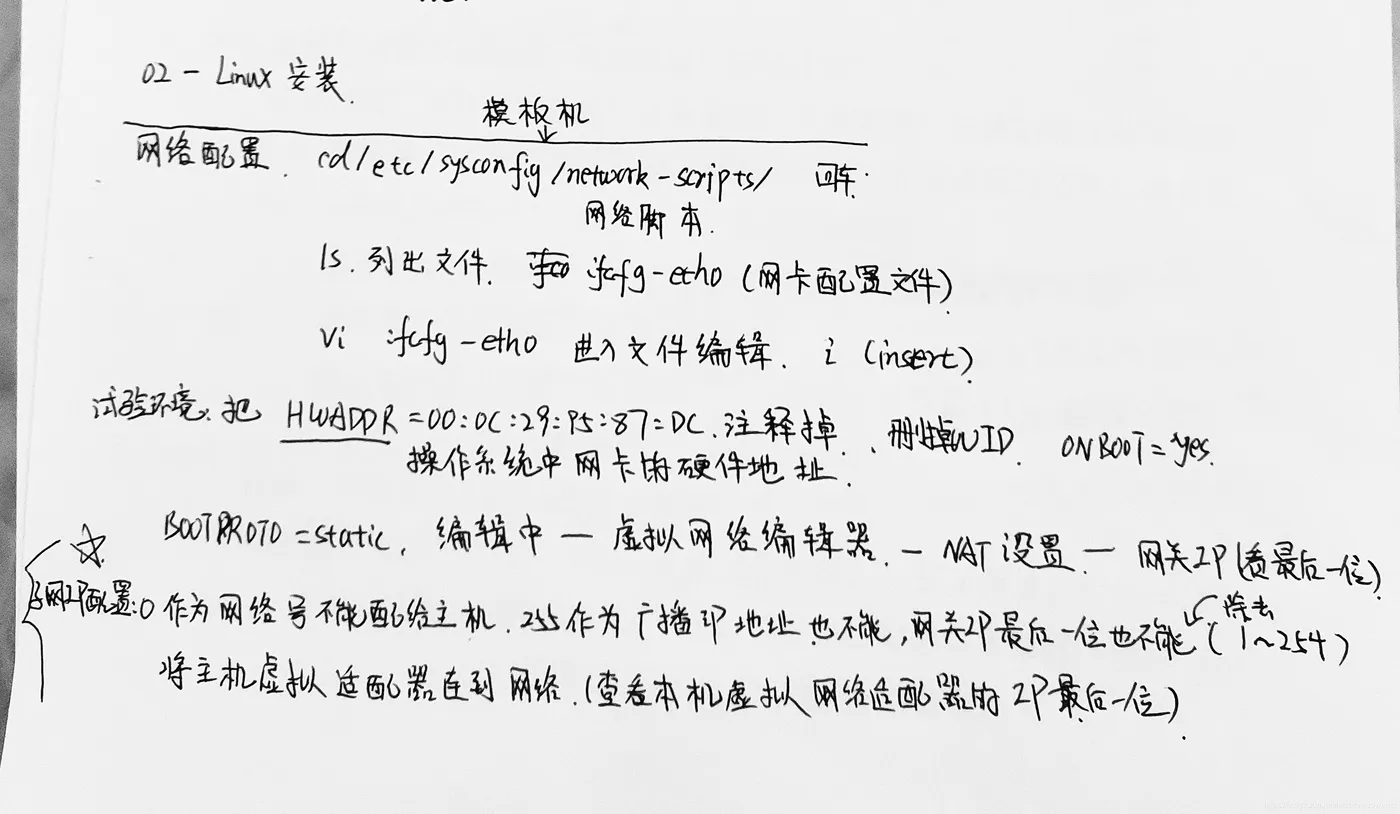 02 - Linux 安装.
模板机
网络配置. cd/etc/sysconfig/network-scripts/ 回车.
网络脚本.
ls. 列出文件. ifcfg-eth0 (网卡配置文件)
vi ifcfg-eth0 进入文件编辑. i (insert).
试验环境: 把 HWADDR=00:0C:29:95:87:DC.注释掉. 、删掉UUID. ONBOOT=yes.
操作系统中网卡的硬件地址.
BOOTPROTO=static. 编辑中 — 虚拟网络编辑器. — NAT设置 — 网关IP(看最后一位)
☆
除去
IP配置:0作为网络号不能配给主机. 255作为广播IP地址也不能,网关IP最后一位也不能(1~254)
将主机虚拟适配器连到网络.(查看本机虚拟网络适配器的IP最后一位).